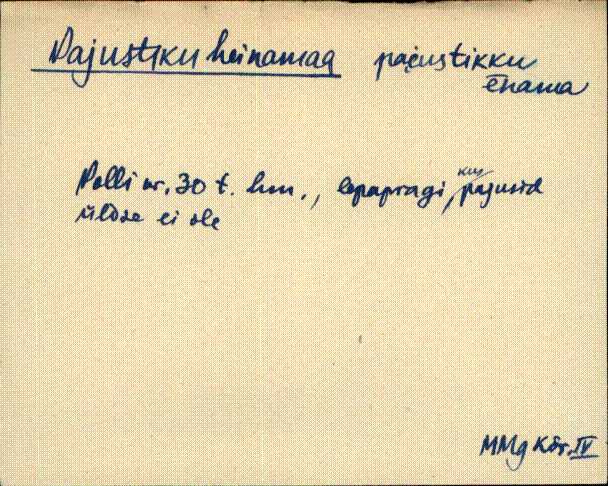 Pajustiku heinamaa pajustikku
ēnama
Polli nr. 30 t. hm., lepapragi, kus pajusid
üldse ei ole
MMg Kär. IV